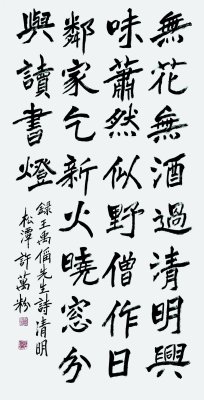 無花無酒過清明興
味蕭然似野僧作日
鄰家乞新火曉窓分
與讀書燈
錄王禹偁先生詩清明
松潭許萬粉